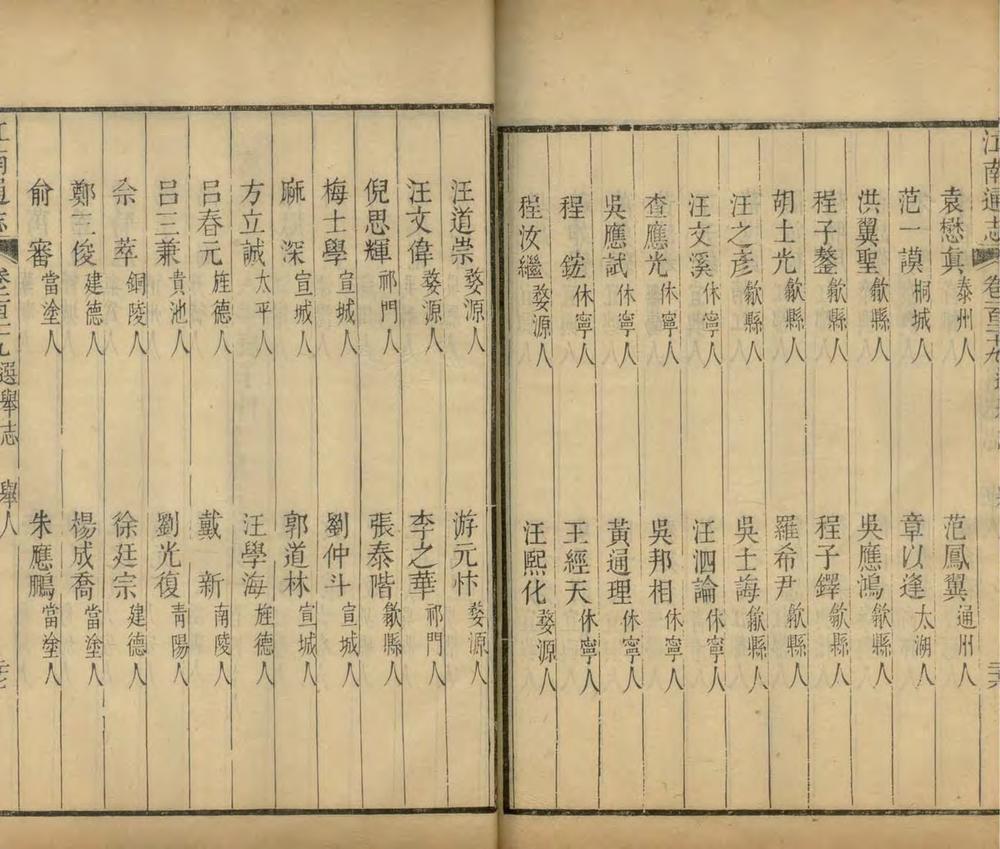 江南通志 卷一百二十九
袁懋真 泰州人 范鳳翼 通州人
范一謨 桐城人 章以逢 太湖人
洪翼聖 歙縣人 吳應鴻 歙縣人
程子鏊 歙縣人 程子鐸 歙縣人
胡士光 歙縣人 羅希尹 歙縣人
汪之彥 歙縣人 吳士誨 歙縣人
汪文溪 休寧人 汪泗論 休寧人
查應光 休寧人 吳邦相 休寧人
吳應試 休寧人 黃通理 休寧人
程 鋐 休寧人 王經天 休寧人
程汝繼 婺源人 汪熙化 婺源人
汪道崇 婺源人 游元忭 婺源人
汪文偉 婺源人 李之華 祁門人
倪思輝 祁門人 張泰階 歙縣人
梅士學 宣城人 劉仲斗 宣城人
麻 深 宣城人 郭道林 宣城人
方立誠 太平人 汪學海 旌德人
呂春元 旌德人 戴 新 南陵人
呂三兼 貴池人 劉光復 青陽人
佘 萃 銅陵人 徐廷宗 建德人
鄭三俊 建德人 楊成喬 當塗人
俞 審 當塗人 朱應鵬 當塗人
江南通志 卷一百二十九 選舉志 舉人